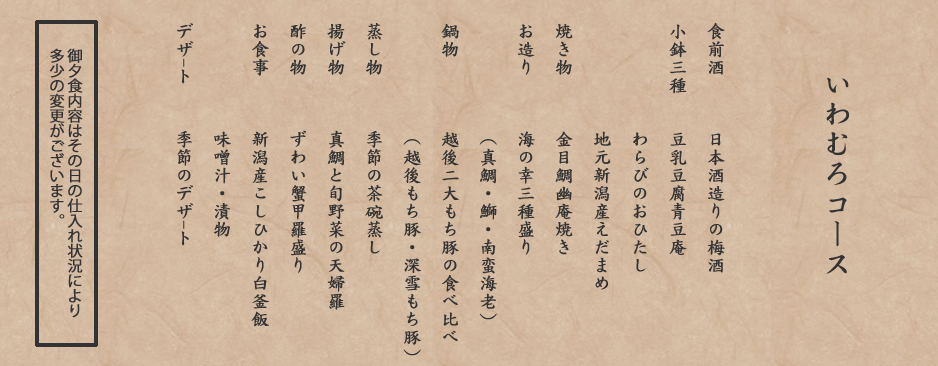 いわむろコース
食前酒 日本酒造りの梅酒
小鉢三種 豆乳豆腐青豆庵
わらびのおひたし
地元新潟産えだまめ
焼き物 金目鯛幽庵焼き
お造り 海の幸三種盛り
（真鯛・鰤・南蛮海老）
鍋物 越後二大もち豚の食べ比べ
（越後もち豚・深雪もち豚）
蒸し物 季節の茶碗蒸し
揚げ物 真鯛と旬野菜の天婦羅
酢の物 ずわい蟹甲羅盛り
お食事 新潟産こしひかり白釜飯
味噌汁・漬物
デザート 季節のデザート
御夕食内容はその日の仕入れ状況により
多少の変更がございます。